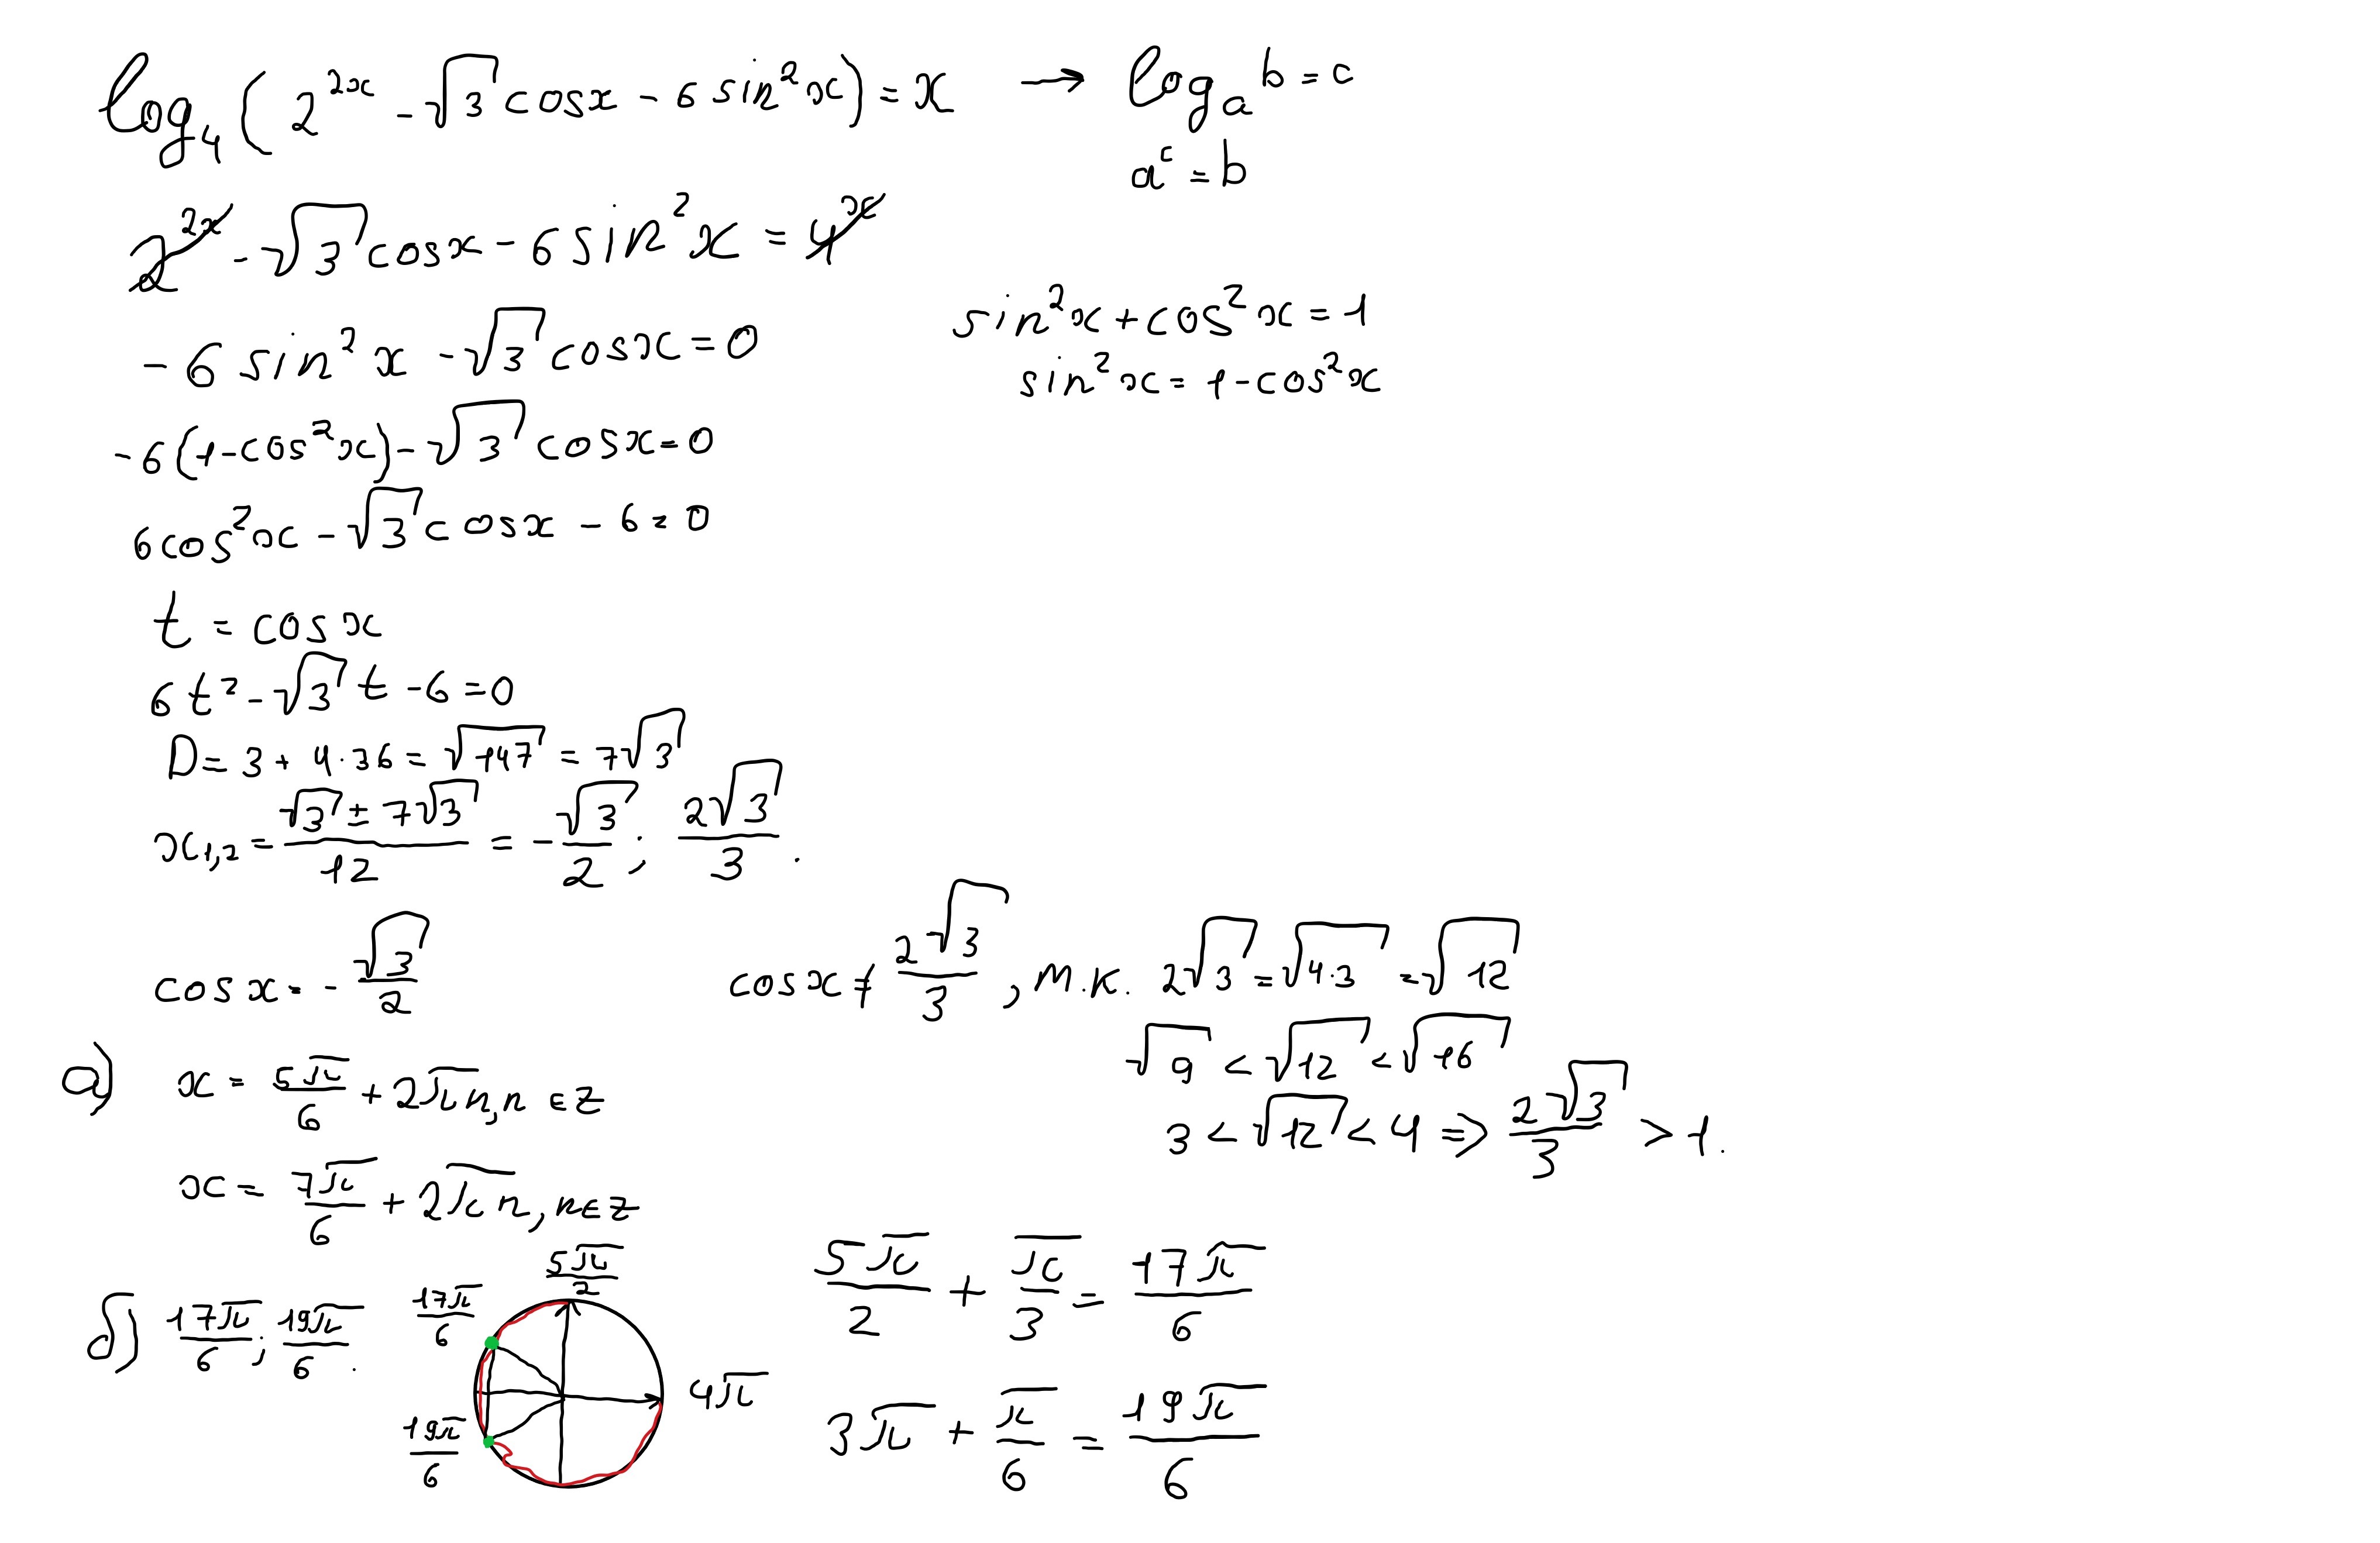 log₄(2²ˣ - √3 cosx - 6 sin²x) = x → logₐb = c
aᶜ = b
2²ˣ - √3 cosx - 6 sin²x = 4ˣ
sin²x + cos²x = 1
-6 sin²x - √3 cosx = 0
sin²x = 1 - cos²x
-6(1 - cos²x) - √3 cosx = 0
6cos²x - √3 cosx - 6 = 0
t = cosx
6t² - √3 t - 6 = 0
D = 3 + 4·36 = √147 = 7√3
x₁,₂ = (√3 ± 7√3)/12 = -√3/2; 2√3/3.
cosx = -√3/2
cosx ≠ 2√3/3, т.к. 2√3 = √4·3 = √12
√9 < √12 < √16
3 < √12 < 4 ⇒ 2√3/3 > 1.
а) x = 5π/6 + 2πn, n∈Z
x = 7π/6 + 2πn, n∈Z
б) 17π/6; 19π/6.
5π/2
17π/6
4π
19π/6
5π/2 + π/3 = 17π/6
3π + π/6 = 19π/6